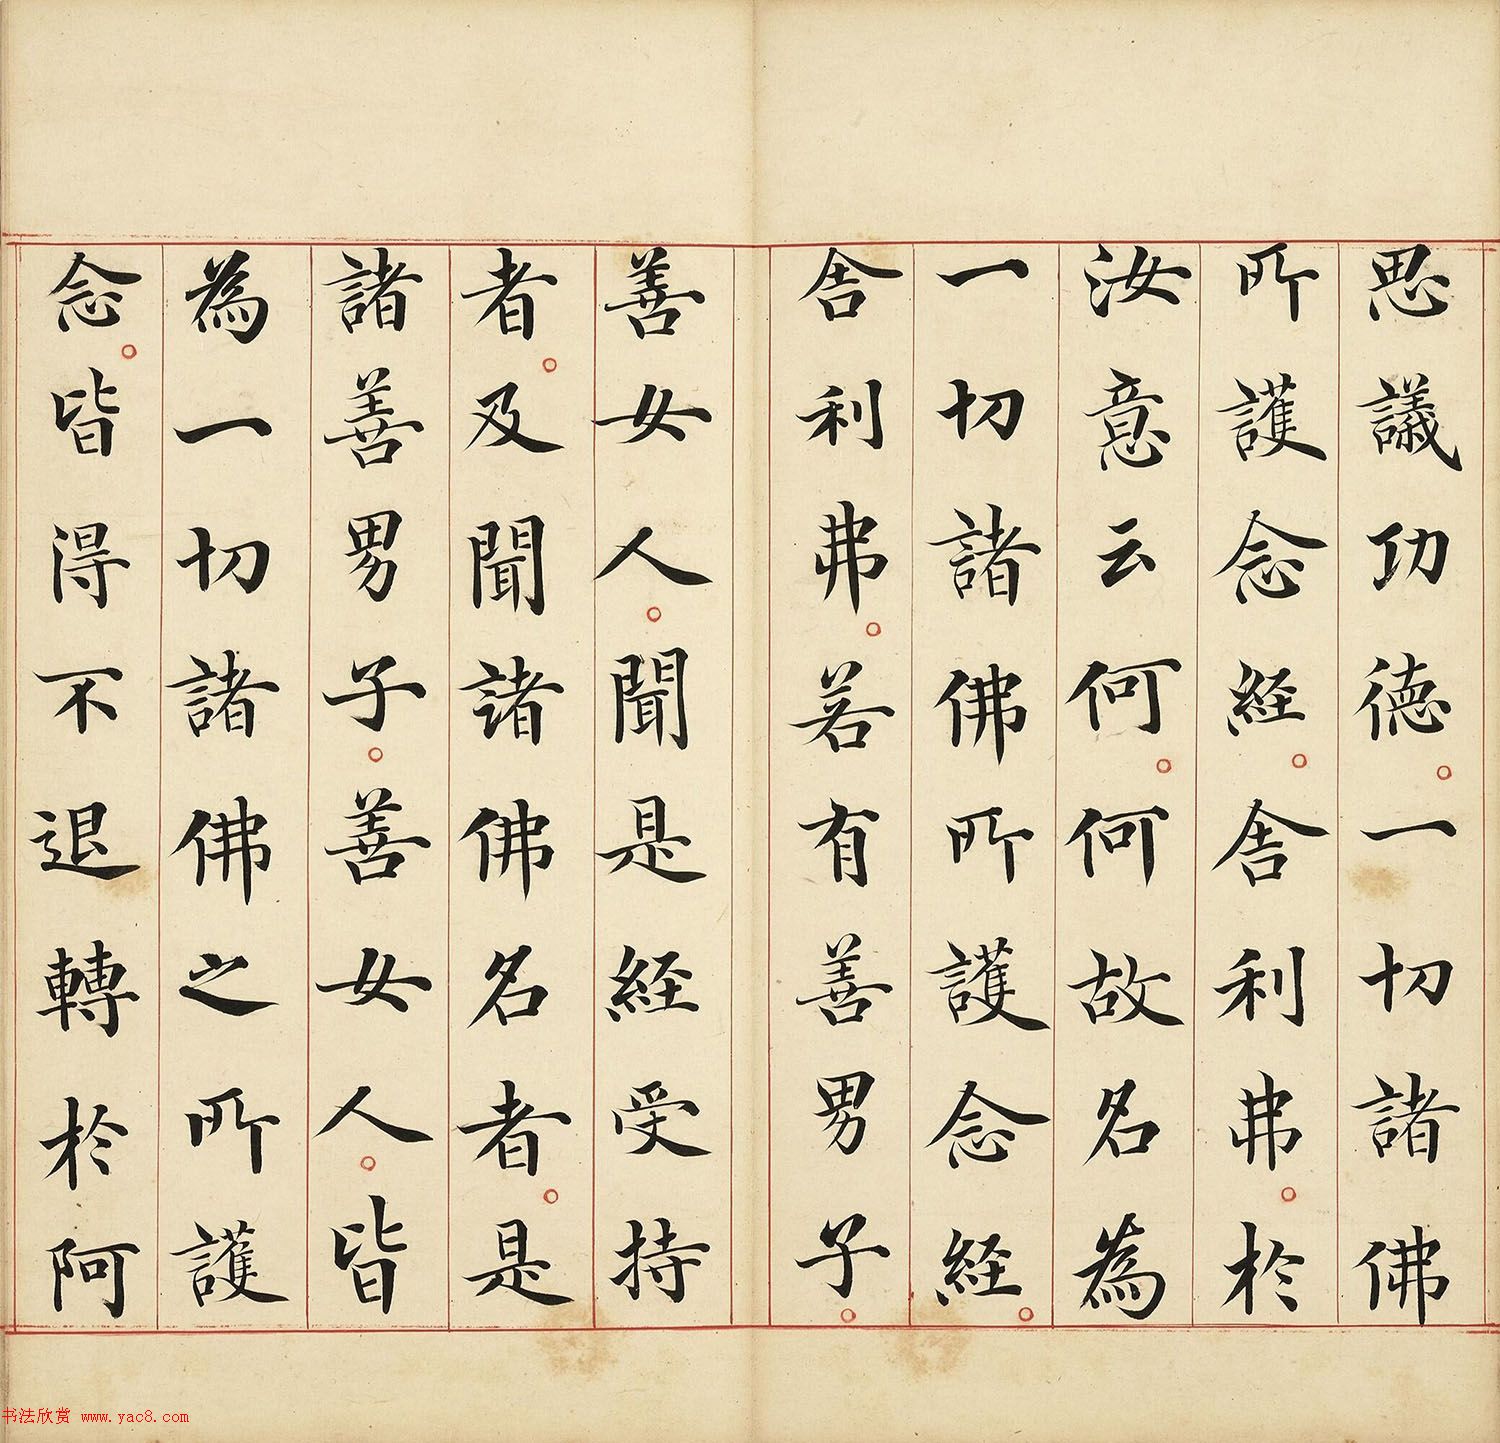 思議功德。一切諸佛
所護念経。舍利弗。於
汝意云何。何故名為
一切諸佛所護念経。
舍利弗。若有善男子。
善女人。聞是経受持
者。及聞諸佛名者。是
諸善男子。善女人。皆
為一切諸佛之所護
念。皆得不退轉於阿
书法欣赏 www.yac8.com